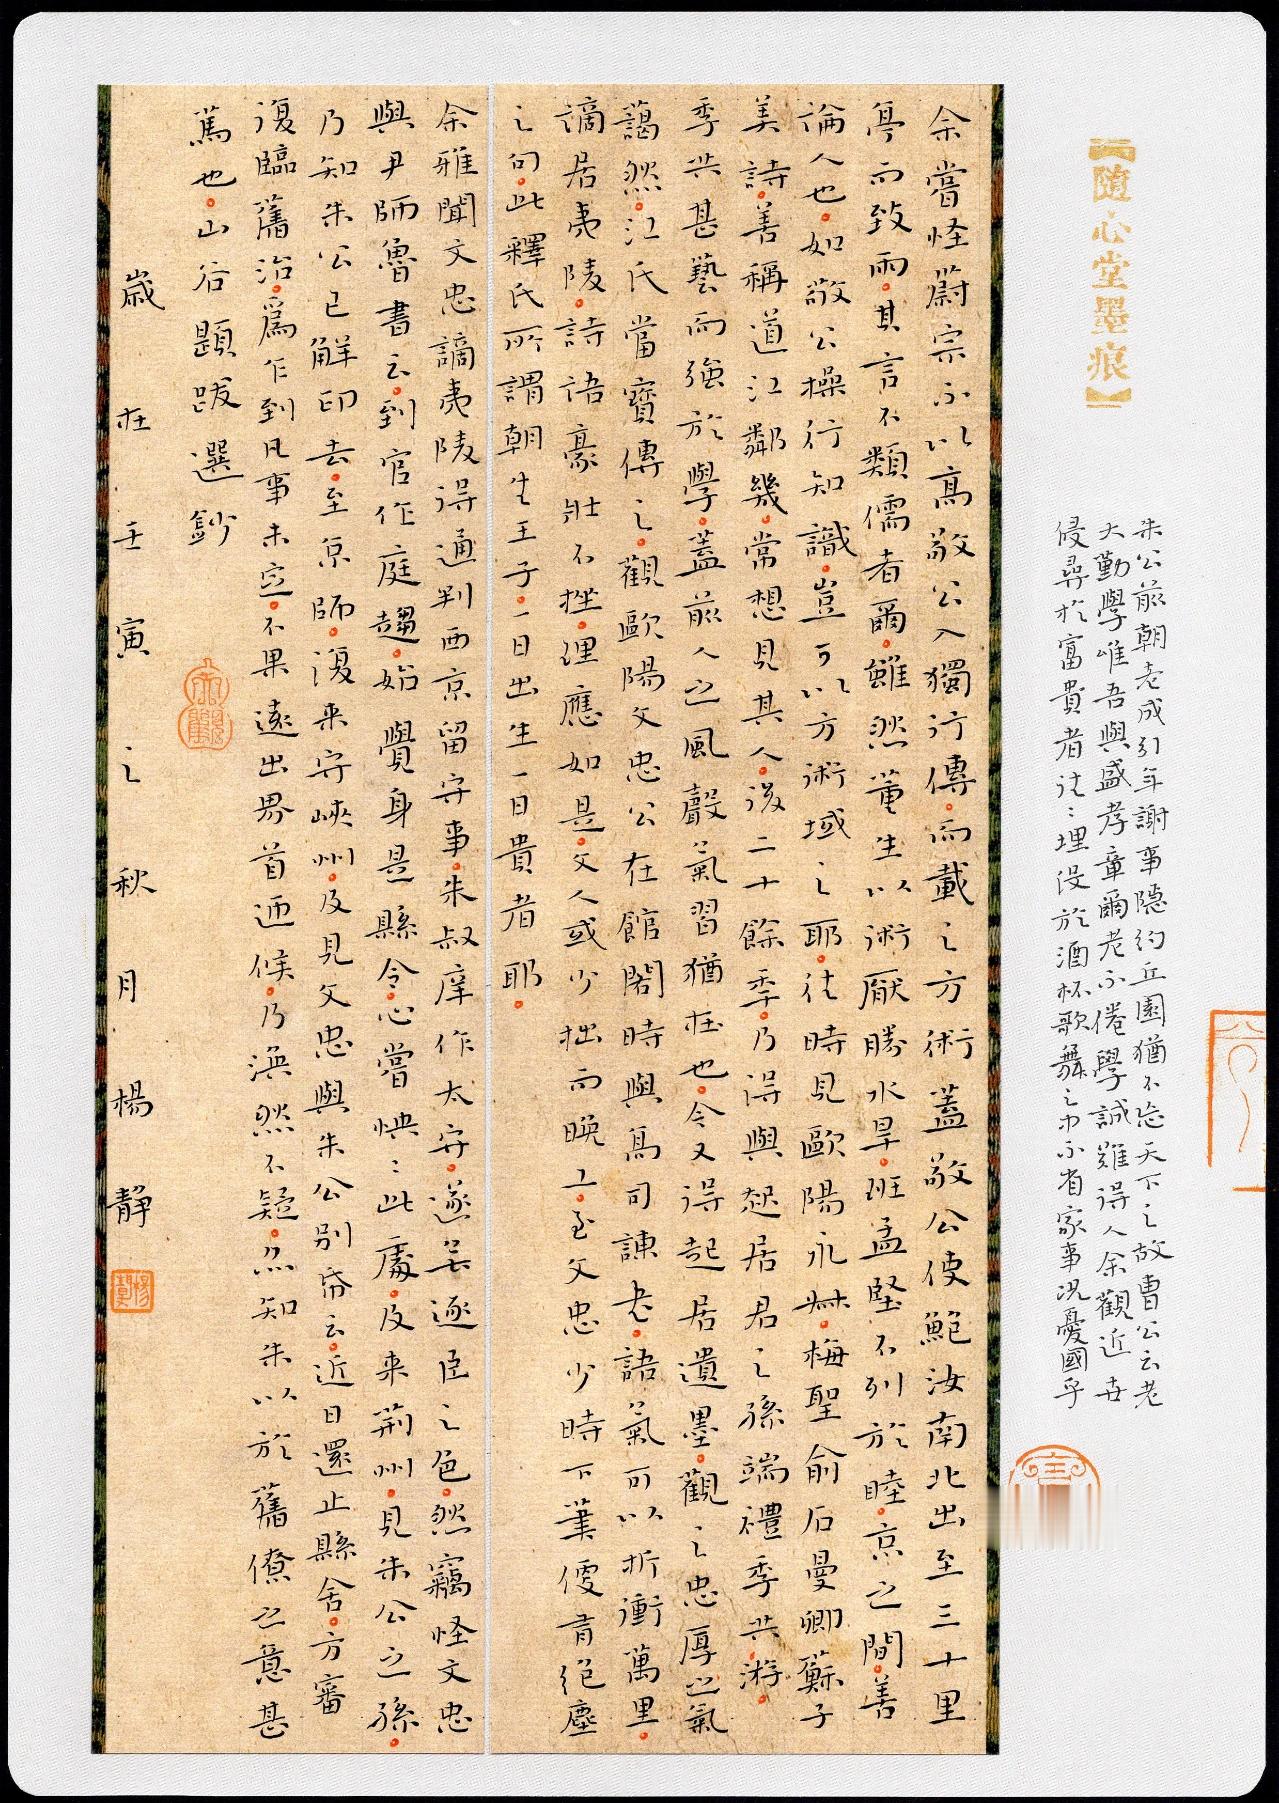 【隨心堂墨痕】
朱公前朝老成引年謝事隐約丘園猶不忘天下之故曹公云老
大勤學唯吾與盛孝章爾老不倦學誠難得人余觀近世
侵尋於富貴者往〻埋没於酒杯歌舞之中不省家事况憂國乎
余嘗怪蔚宗不以高敬公入獨行傳。而載之方術蓋敬公使鮑汝南北出至三十里
亭而致雨。其言不類儒者爾。雖然董生以術厭勝水旱。班孟堅不列於眭。京之間。善
論人也。如敬公操行知識。豈可以方術域之耶。往時見歐陽永叔。梅聖俞石曼卿蘇子
美詩。善稱道江鄰幾。常想見其人。後二十餘季。乃得與起居君之孫端禮季共。游。
季共甚藝而強於學。蓋前人之風聲氣習猶在也。今又得起居遺墨。觀之忠厚之氣
藹然。江氏當寳傳之。觀歐陽文忠公在館閣時與高司諫書。語氣可以折衝萬里。
謫居夷陵。詩語豪壯不挫。理應如是。文人或少拙而晚工。至文忠少時下筆便有絕塵
之句。此釋氏所謂朝生王子。一日出生一日貴者耶。
余雅聞文忠謫夷陵得通判西京留守事。朱叔庠作太守。遂無逐臣之色。然竊怪文忠
與尹師魯書云。到官作庭趨。始覺身是縣令。心嘗怏〻此處。及来荊州。見朱公之孫。
乃知朱公已解印去。至京師。復来守峽州。及見文忠與朱公別帋云。近日還止縣舍。方審
復臨舊治。爲乍到凡事未定。不果遠出界首迎候。乃涣然不疑。亦知朱以於舊僚之意甚
篤也。山谷題跋選鈔
歲在壬寅之秋月楊靜